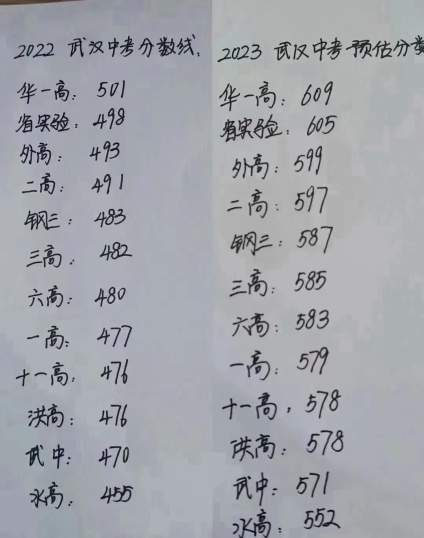 2022 武汉中考分数线.
华一高: 501
省实验: 498
外高: 493
二高: 491
钢三: 483
三高: 482
六高: 480
一高: 477
十一高: 476
洪高: 476
武中: 470
水高: 455
2023 武汉中考预估分数
华一高: 609
省实验: 605
外高: 599
二高: 597
钢三: 587
三高: 585
六高: 583
一高: 579
十一高: 578
洪高: 578
武中: 571
水高: 552